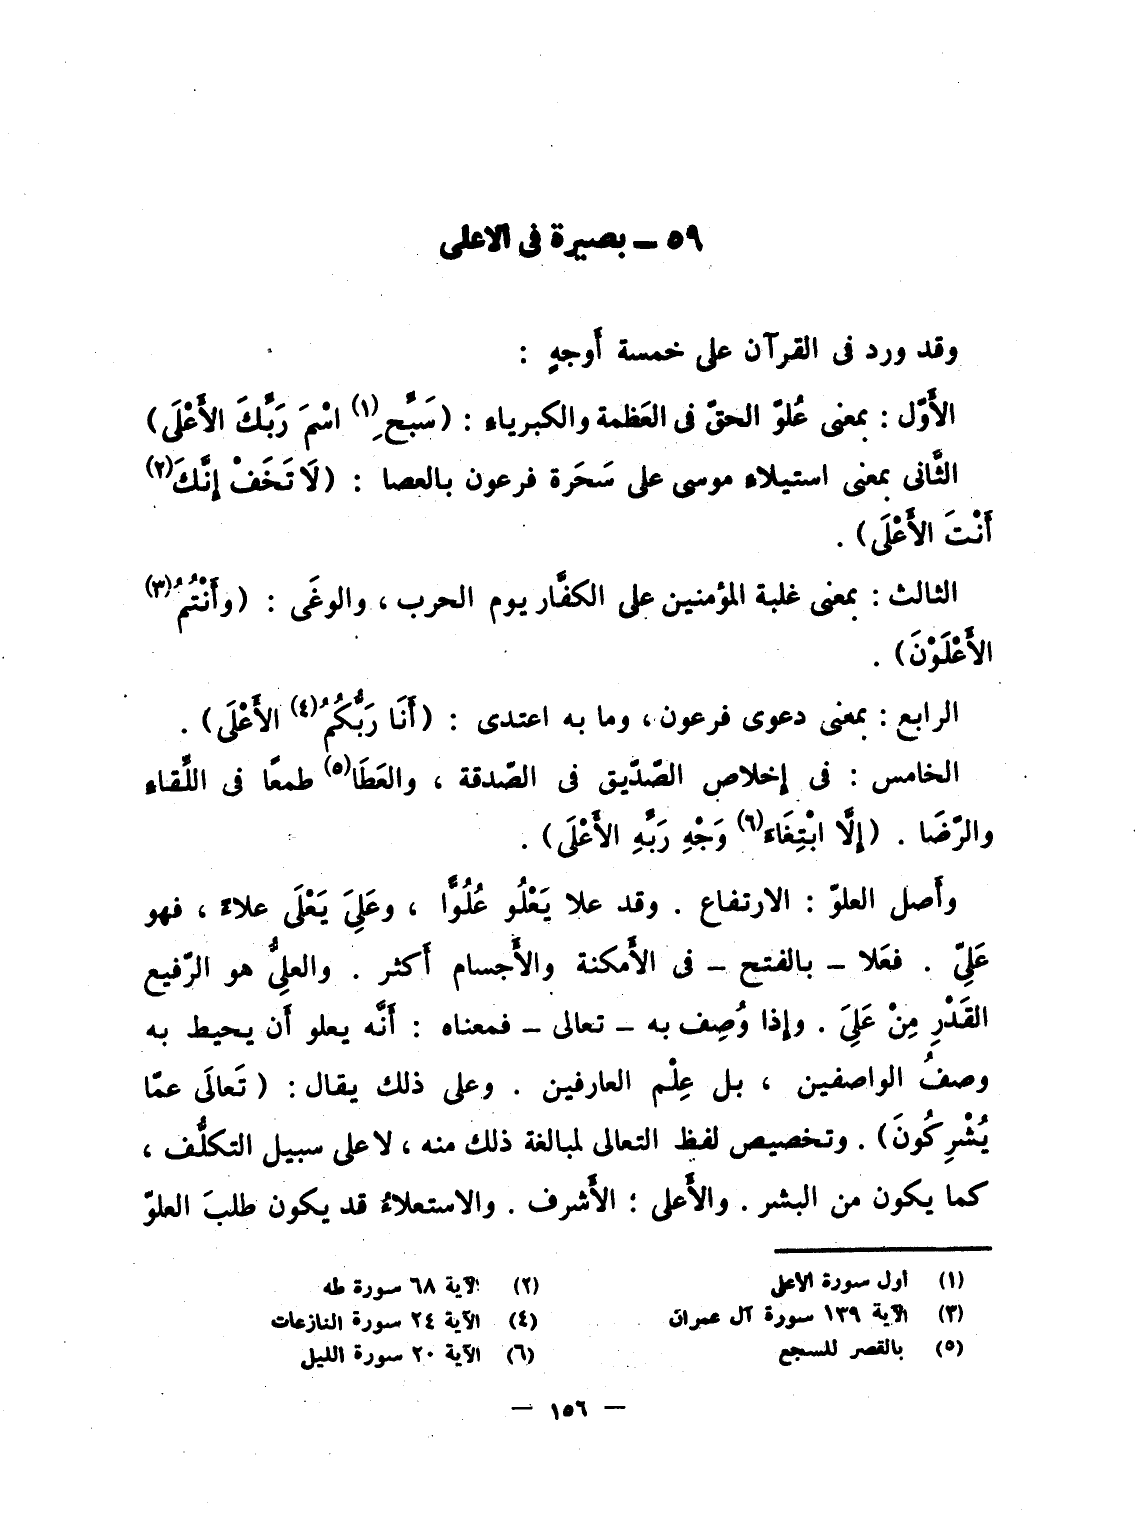 ٥٩ ــ بصيرة فى الاعلى
وقد ورد فى القرآن على خمسة أَوجهٍ :
الأَوّل : بمعنى عُلوّ الحقّ فى العَظمة والكبرياء : (سَبَّحِ(١) اسْمَ رَبَّكَ الأَعْلَى)
الثَّانى بمعنى استيلاء موسى على سَحَرة فرعون بالعصا : (لَا تَخَفْ إِنَّكَ(٢)
أَنْتَ الأَعْلَى) .
الثالث : بمعنى غلبة المؤمنين على الكفَّار يوم الحرب ، والوغَى : (وأَنْتُمُ(٣)
الأَعْلَوْنَ) .
الرابع : بمعنى دعوى فرعون ، وما به اعتدى : (أَنَا رَبُّكُمُ(٤) الأَعْلَى) .
الخامس : فى إخلاص الصّدّيق فى الصّدقة ، والعَطَا(٥) طمعًا فى اللَّقاء
والرّضَا . (إِلَّا ابْتِغَاء(٦) وَجْهِ رَبَّهِ الأَعْلَى) .
وأَصل العلوّ : الارتفاع . وقد علا يَعْلُو عُلُوًّا ، وعَلِىَ يَعْلَى علاءً ، فهو
عَلِىّ . فعَلا – بالفتح – فى الأَمكنة والأَجسام أَكثر . والعلِىُّ هو الرّفيع
القَدْرِ مِنْ عَلِىَ . وإِذا وُصِف به – تعالى – فمعناه : أَنَّه يعلو أَن يحيط به
وصفُ الواصفين ، بل عِلْم العارفين . وعلى ذلك يقال : ( تَعالَى عمّا
يُشْرِكُونَ) . وتخصيص لفظ التعالى لمبالغة ذلك منه ، لا على سبيل التكلُّف ،
كما يكون من البشر . والأَعلى : الأَشرف . والاستعلاءُ قد يكون طلبَ العلوّ
(١) أول سورة الأعلى
(٢) الآية ٦٨ سورة طه
(٣) الآية ١٣٩ سورة آل عمران
(٤) الآية ٢٤ سورة النازعات
(٥) بالقصر للسجع
(٦) الآية ٢٠ سورة الليل
— ١٥٦ —